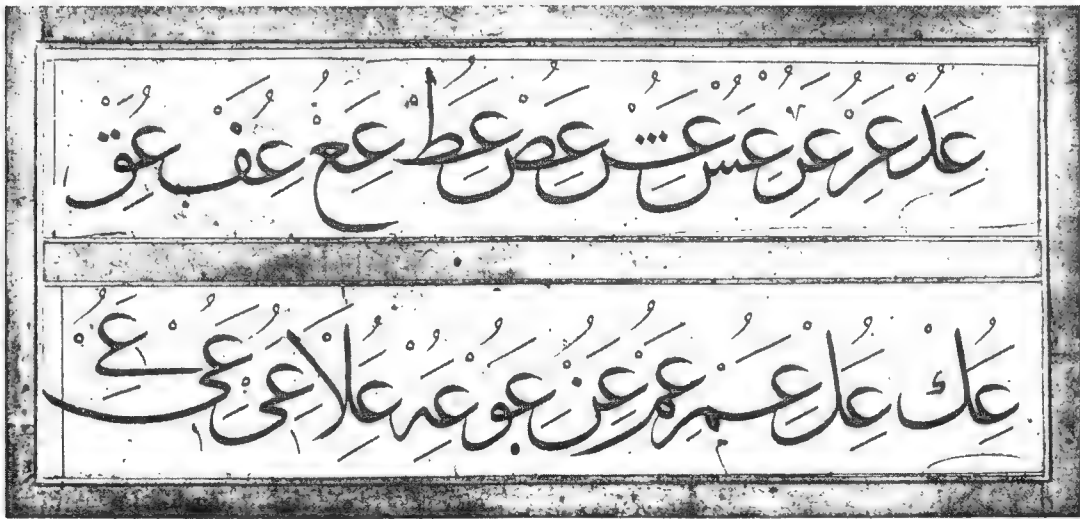 عد عر عر عس عش عص عط عع عف عق
عك عل عم عم عن عو عه علا عى عى عے